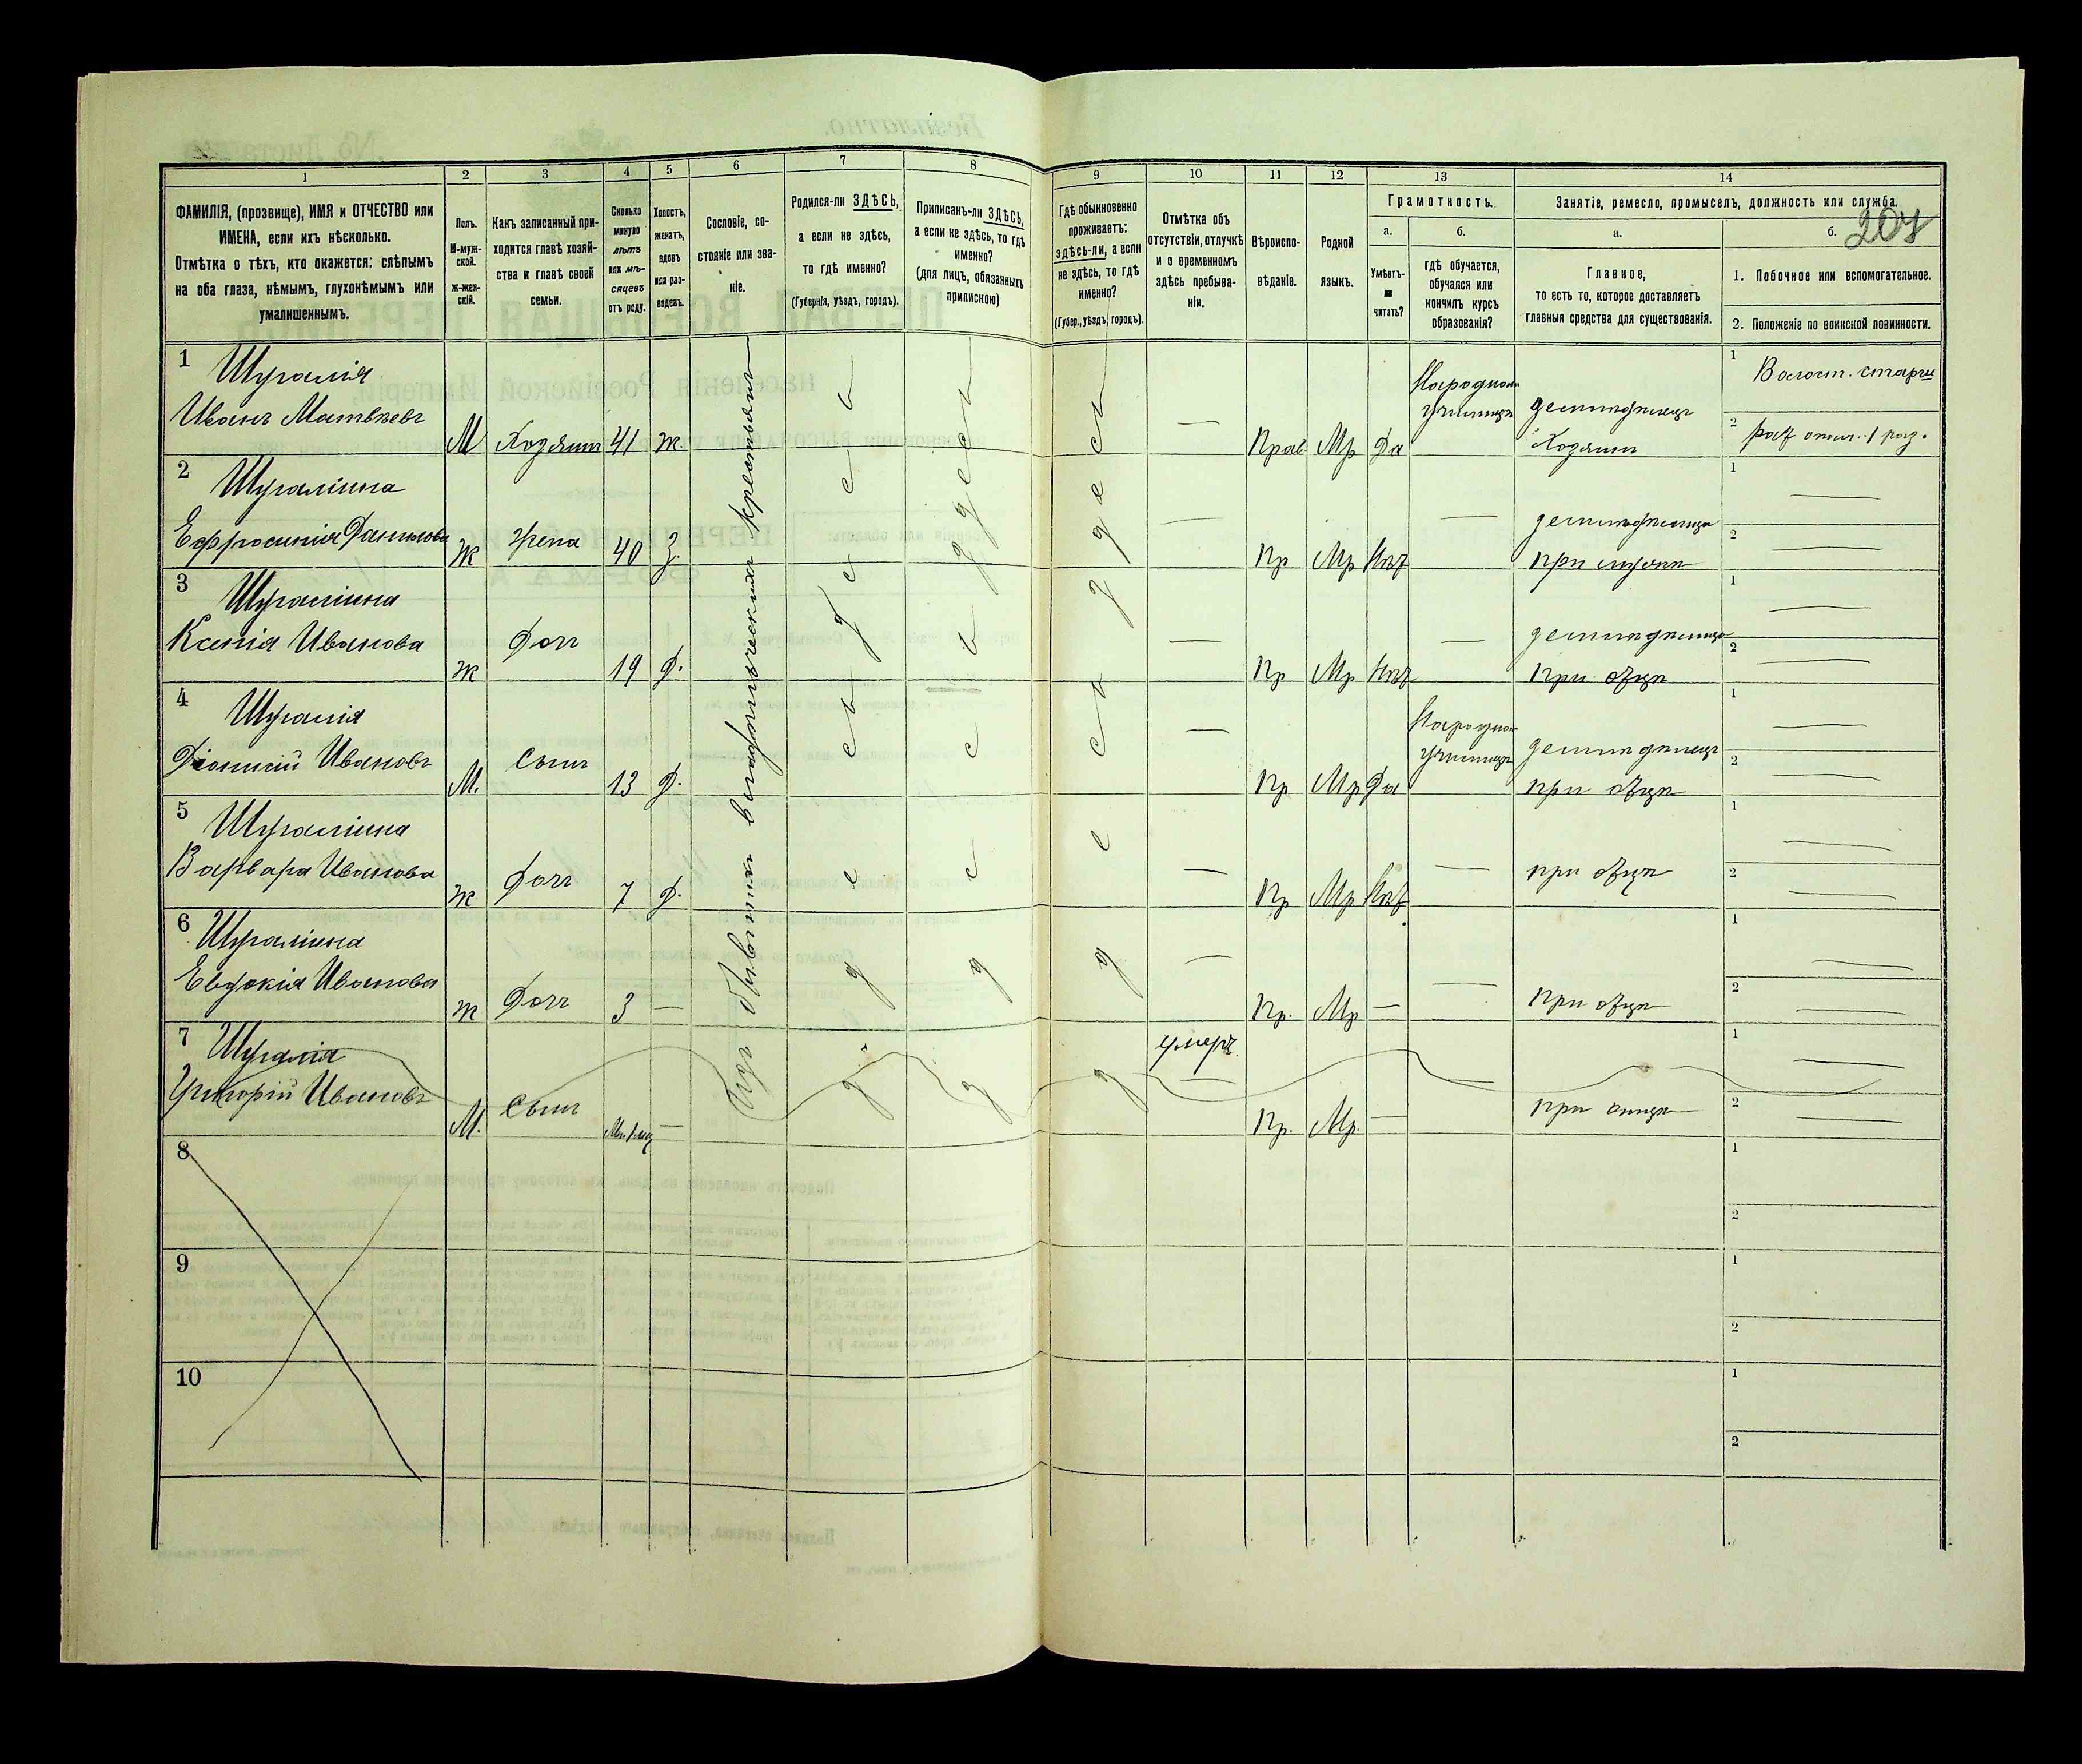 1 2 3 4 5 6 7 8 9 10 11 12 13 14
ФАМИЛІЯ, (прозвище), ИМЯ и ОТЧЕСТВО или
ИМЕНА, если ихъ нѣсколько.
Отмѣтка о тѣхъ, кто окажется: слѣпымъ
на оба глаза, нѣмымъ, глухонѣмымъ или
умалишеннымъ.
Полъ.
М-муж-
ской.
Ж-жен-
скій.
Какъ записанный при-
ходится главѣ хозяй-
ства и главѣ своей
семьи.
Сколько
минуло
лѣтъ
или мѣ-
сяцевъ
отъ роду.
Холостъ,
женатъ,
вдовъ
или раз-
веденъ.
Сословіе, со-
стояніе или зва-
ніе.
Родился-ли ЗДѢСЬ,
а если не здѣсь,
то гдѣ именно?
(Губернія, уѣздъ, городъ).
Приписанъ-ли ЗДѢСЬ,
а если не здѣсь, то гдѣ
именно?
(для лицъ, обязанныхъ
припискою)
Гдѣ обыкновенно
проживаетъ:
здѣсь-ли, а если
не здѣсь, то гдѣ
именно?
(Губер., уѣздъ, городъ).
Отмѣтка объ
отсутствіи, отлучкѣ
и о временномъ
здѣсь пребыва-
ніи.
Вѣроиспо-
вѣданіе.
Родной
языкъ.
Грамотность.
а.
Умѣетъ-
ли
читать?
б.
гдѣ обучается,
обучался или
кончилъ курсъ
образованія?
Занятіе, ремесло, промыселъ, должность или служба.
207
а.
Главное,
то есть то, которое доставляетъ
главныя средства для существованія.
б.
1. Побочное или вспомогательное.
2. Положеніе по воинской повинности.
1 Шугалія
Иванъ Матвѣевъ М Хозяинъ 41 ж. — Прав. Мр Да
Народном
училищѣ
земледѣлецъ
Хозяинъ
1 Волост. старш
2
2 Шугаліина
Ефросинія Данилова Ж Жена 40 З. — Пр Мр Нѣт —
земледѣлица
при мужѣ
1 —
2 —
3 Шугаліина
Ксенія Иванова Ж Дочь 19 Д. — Пр Мр Нѣт —
земледѣлица
при отцѣ
1 —
2 —
4 Шугалія
Діонисій Ивановъ М. Сынъ 13 Д. — Пр Мр Да
Народном
училищѣ
земледѣлецъ
при отцѣ
1 —
2 —
5 Шугаліина
Варвара Иванова Ж Дочь 7 Д. — Пр Мр Нѣт. — при отцѣ
1 —
2 —
6 Шугаліина
Евдокія Иванова Ж Дочь 3 — — Пр. Мр — — при отцѣ
1 —
2
7 Шугалія
Григорій Ивановъ М. Сынъ — умеръ. — Пр. Мр. — — при отцѣ
1 —
2 —
Изъ бывшихъ владѣльческихъ крестьянъ
здѣсь
здѣсь
здѣсь
8
1
2
9
1
2
10
1
2